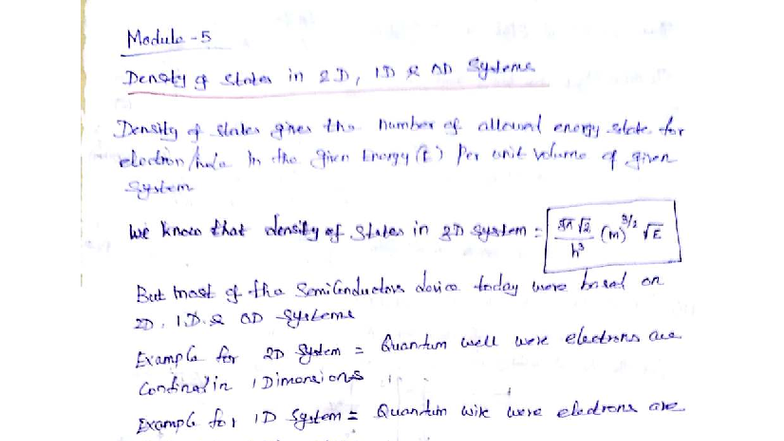 Module - 5
Density of states in 2D, 1D & 0D Systems
Density of states gives the number of allowed energy state for
electron/hole in the given Energy (E) Per unit volume of given
System
We know that density of states in 3D system = 8π√2/h³ (m)^3/2 √E
But most of the Semiconductors device today were based on
2D, 1D & 0D Systems
Example for 2D System = Quantum well were electrons are
Confined in 1 Dimensions
Example for 1D System = Quantum wire were electrons are